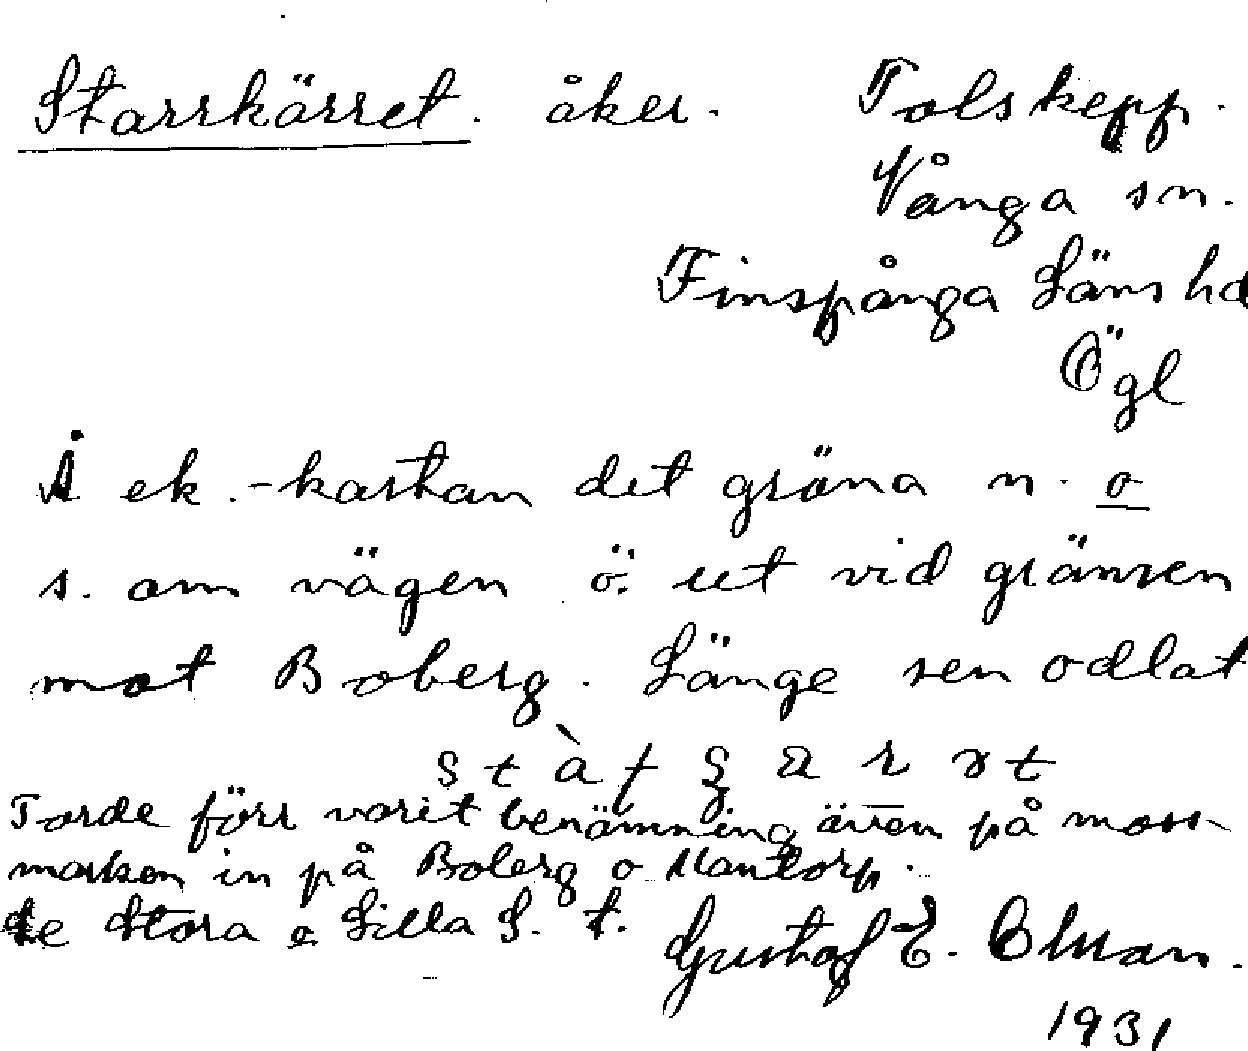 Starrkärret. åker. Tolskepp.
Vånga sn.
Finspånga Läns hd
Ögl
Å ek.-kartan det gröna n. o
s. om vägen ö. ut vid gränsen
mot Boberg. Länge sen odlat
Torde förr varit benämning även på moss-
marken in på Boberg o Mantorp.
Se Stora o Lilla S. t.
Gustaf E. 
1931